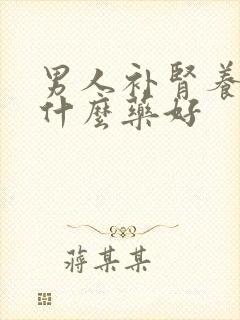 男人补肾养
什麼藥好
蒋某某